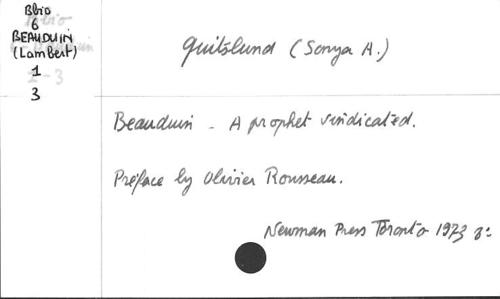 Bbio
6
BEAUDUIN
(Lambert)
1
3
Quitslund (Sonya A.)
Beauduin - A prophet vindicated.
Préface by Olivier Rousseau.
Newman Press Toronto 1973 8°